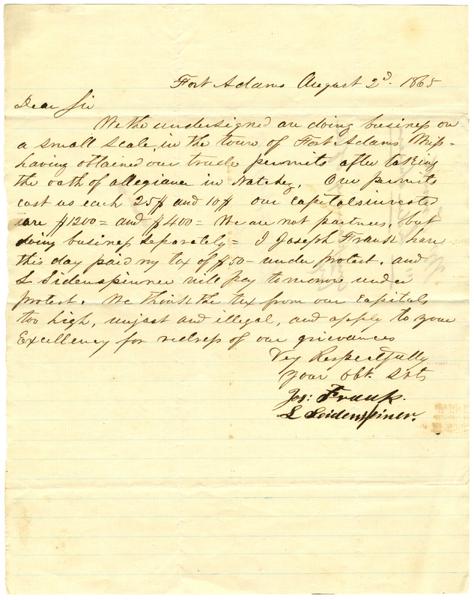 Fort Adams August 2d. 1865
Dear Sir
We the undersigned are doing business on
a small scale, in the town of Fort Adams Miss-
having obtained our trade permits after taking
the oath of allegiance in Natchez, Our permits
cost us each 25$ and 10$ our capitals invested
are $1200= and $400= We are not partners, but
doing business seperately= I Joseph Frank have
this day paid my tax of $50- under protest, and
L Sidenspinner will pay tomorrow under
protest. We think the tax from our capitals
too high, unjust and illegal, and apply to your
Excellency for redress of our grievances
Very Respectfully
your obt. Svts
Jos: Frank.
L Seidenspiner.